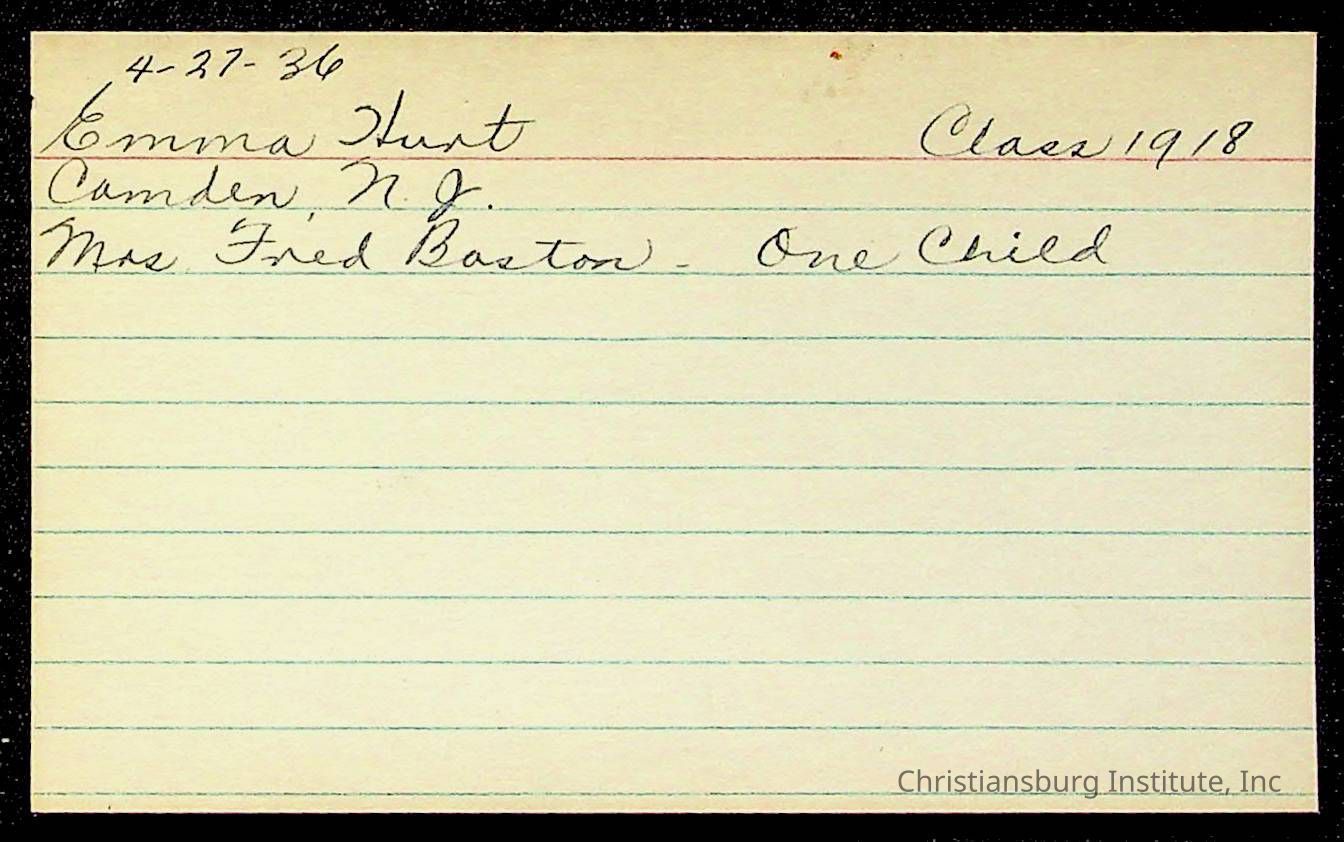 4-27-36
Emma Hurt Class 1918
Camden, N.J.
Mrs Fred Baston - One Child
Christiansburg Institute, Inc